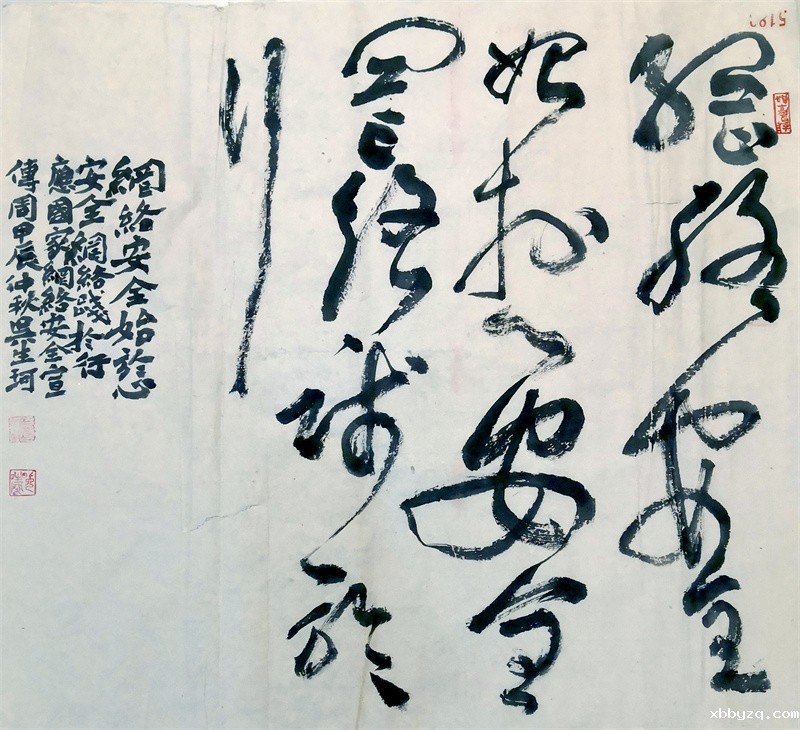 網絡安全
始於心安全
網絡踐於
行
網絡安全始於心
安全網絡踐於行
應國家網絡安全宣
傳周甲辰仲秋吳生珂
xbbyzq.com